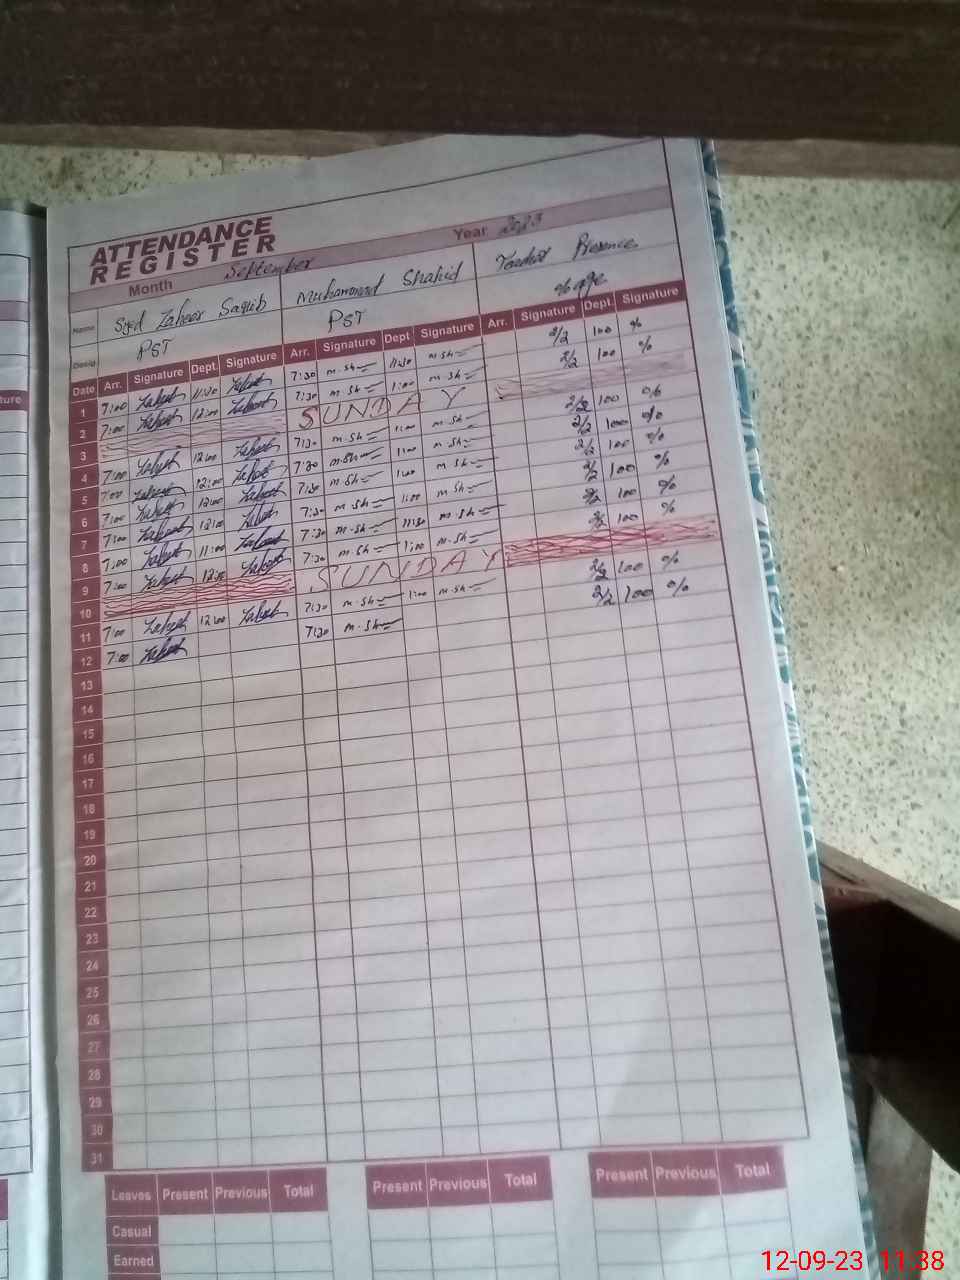 ATTENDANCE
REGISTER
Month September Year 2023
Name Syed Zaheer Saqib Muhammad Shahid Teacher Presence
%age
Desig PST PST
Date Arr. Signature Dept. Signature Arr. Signature Dept Signature Arr. Signature Dept. Signature
1 7:00 11:30 7:30 m.sh 11:30 m.sh 2/2 100 %
2 7:00 12:00 7:30 m.sh 1:00 m.sh 2/2 100 %
3 SUNDAY
4 7:00 12:00 7:30 m.sh 1:00 m.sh 2/2 100 %
5 7:00 12:00 7:30 m.sh 1:00 m.sh 2/2 100 %
6 7:00 12:00 7:30 m.sh 1:00 m.sh 2/2 100 %
7 7:00 12:00 7:30 m.sh 1:00 m.sh 2/2 100 %
8 7:00 11:00 7:30 m.sh 11:30 m.sh 2/2 100 %
9 7:00 12:00 7:30 m.sh 1:00 m.sh 2/2 100 %
10 SUNDAY
11 7:00 12:00 7:30 m.sh 1:00 m.sh 2/2 100 %
12 7:00 7:30 m.sh 2/2 100 %
13
14
15
16
17
18
19
20
21
22
23
24
25
26
27
28
29
30
31
Leaves Present Previous Total Present Previous Total Present Previous Total
Casual
Earned
12-09-23 11:38